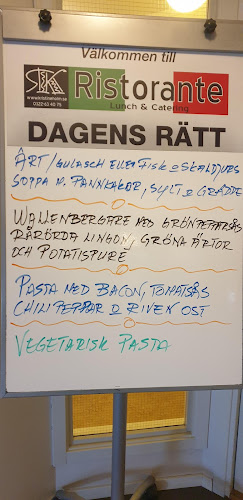 Välkommen till
SK Ristorante
Lunch & Catering
DAGENS RÄTT
ÄRT/GULASCH ELLER FISK O SKALDJURS
SOPPA M. PANNKAKOR, SYLT O GRÄDDE
WALLENBERGARE MED GRÖNPEPPARSÅS
RÅRÖRDA LINGON, GRÖNA ÄRTOR
OCH POTATISPURÉ
PASTA MED BACON, TOMATSÅS
CHILIPEPPAR O RIVEN OST
VEGETARISK PASTA